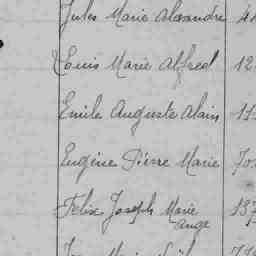 Jules Marie Alexandre
Louis Marie Alfred 12
Emile Auguste Alain 11
Eugène Pierre Marie 70
Félix Joseph Marie 137
Ange